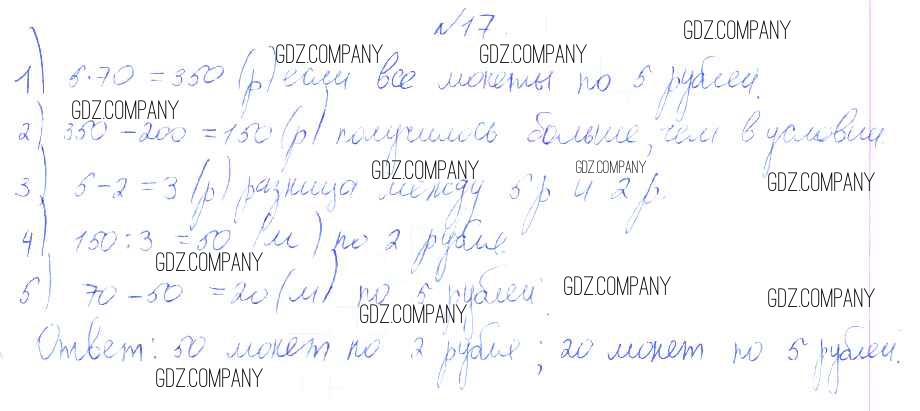 №17.
1) 5·70 = 350 (р) если все монеты по 5 рублей.
2) 350 – 200 = 150 (р) получилось больше, чем в условии.
3) 5 – 2 = 3 (р) разница между 5 р и 2 р.
4) 150 : 3 = 50 (м) по 2 рубля
5) 70 – 50 = 20 (м) по 5 рублей
Ответ: 50 монет по 2 рубля; 20 монет по 5 рублей.
GDZ.COMPANY
GDZ.COMPANY
GDZ.COMPANY
GDZ.COMPANY
GDZ.COMPANY
GDZ.COMPANY
GDZ.COMPANY
GDZ.COMPANY
GDZ.COMPANY
GDZ.COMPANY
GDZ.COMPANY
GDZ.COMPANY